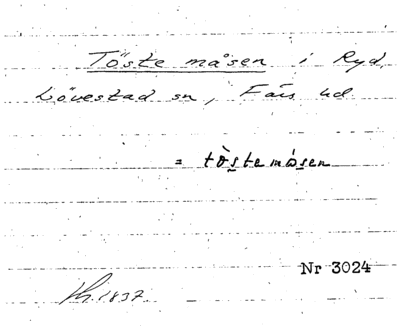 Töste måsen i Ryd,
Lövestad sn, Färs hd.
= töstemåsen
Nr 3024
1837